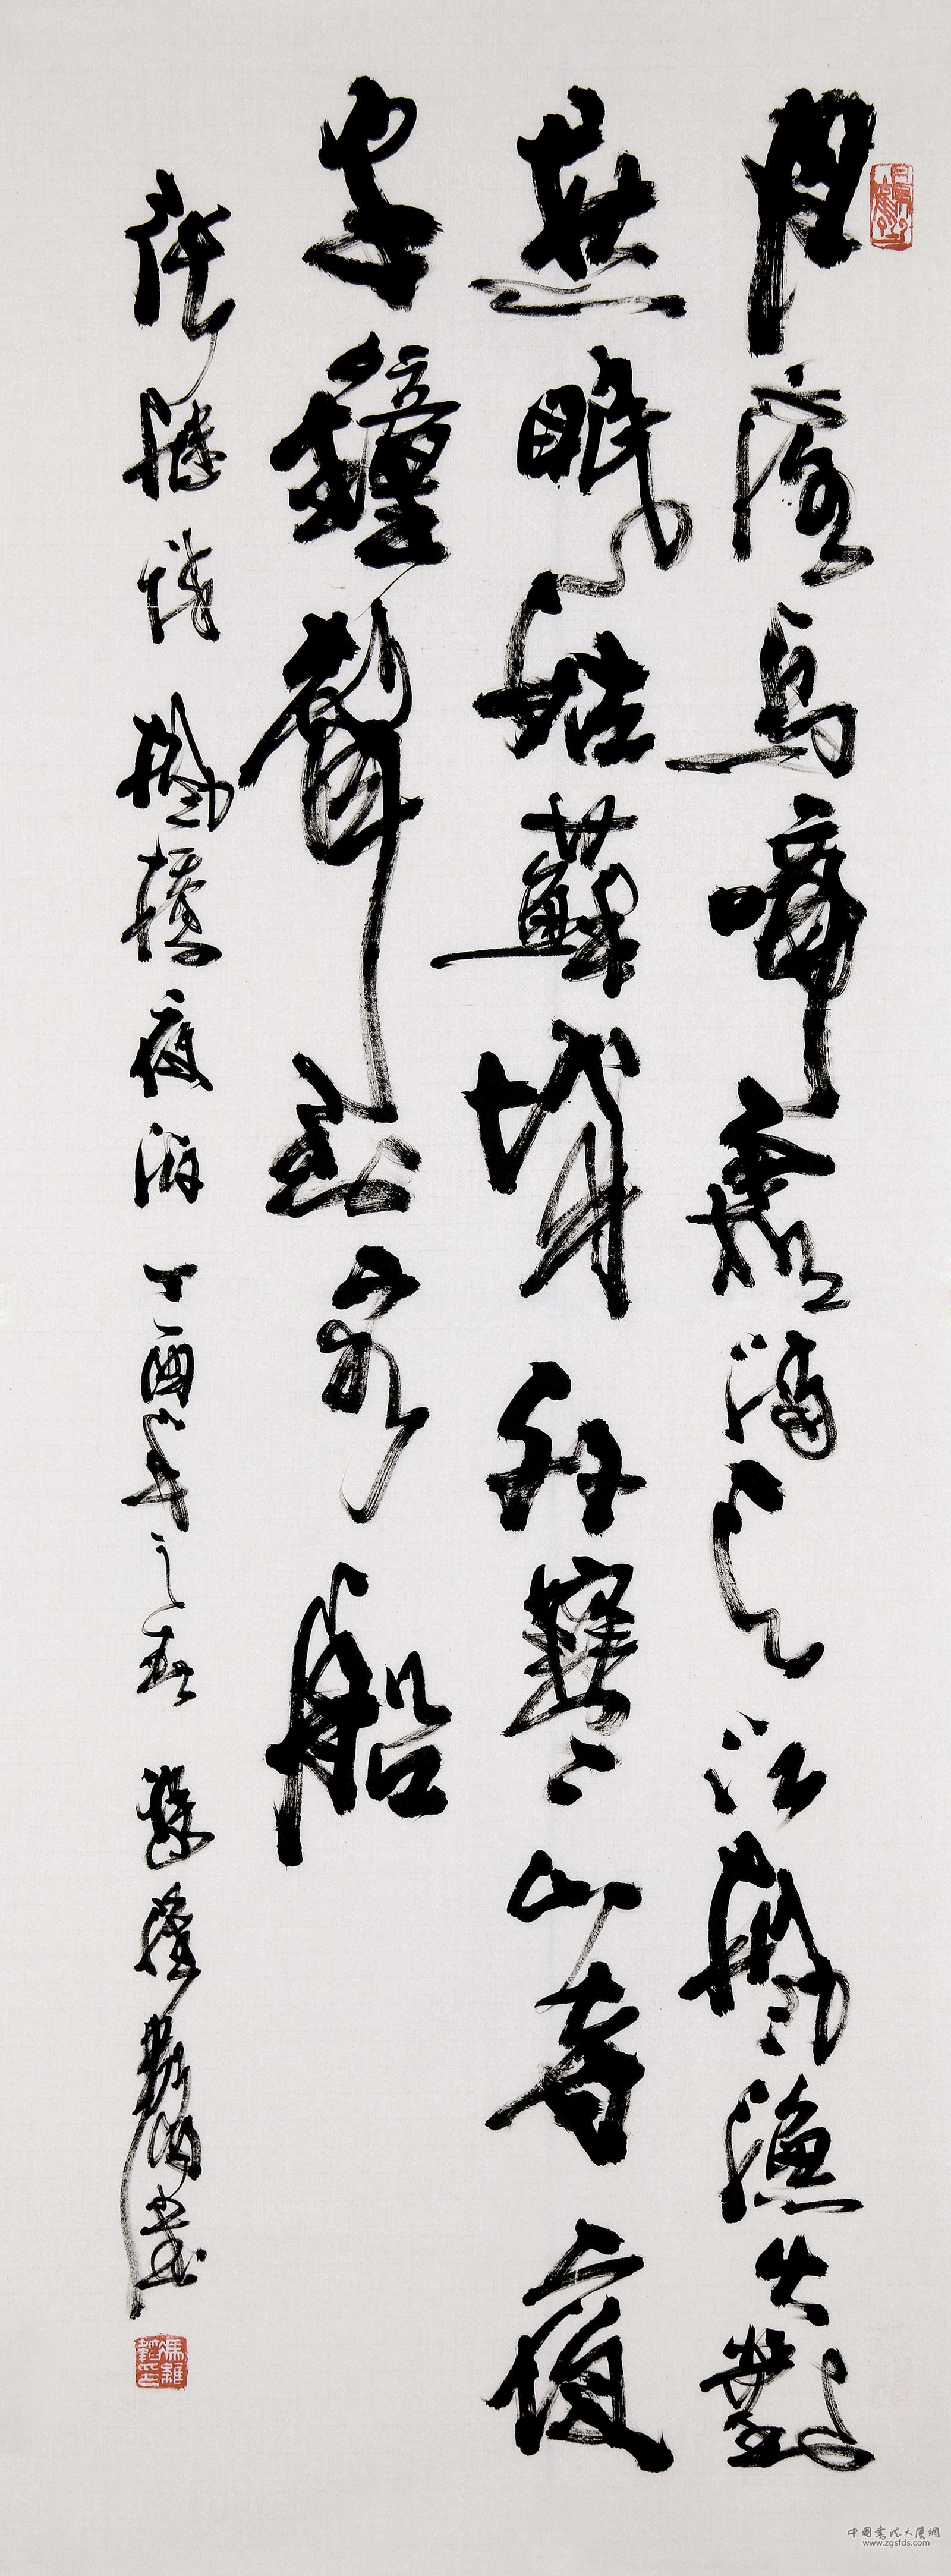 月落烏啼霜滿天江楓漁火對
愁眠姑蘇城外寒山寺夜
半鐘聲到客船
張繼詩 楓橋夜泊 丁酉年之春 書
中国書法大厦網
www.zgsfds.com